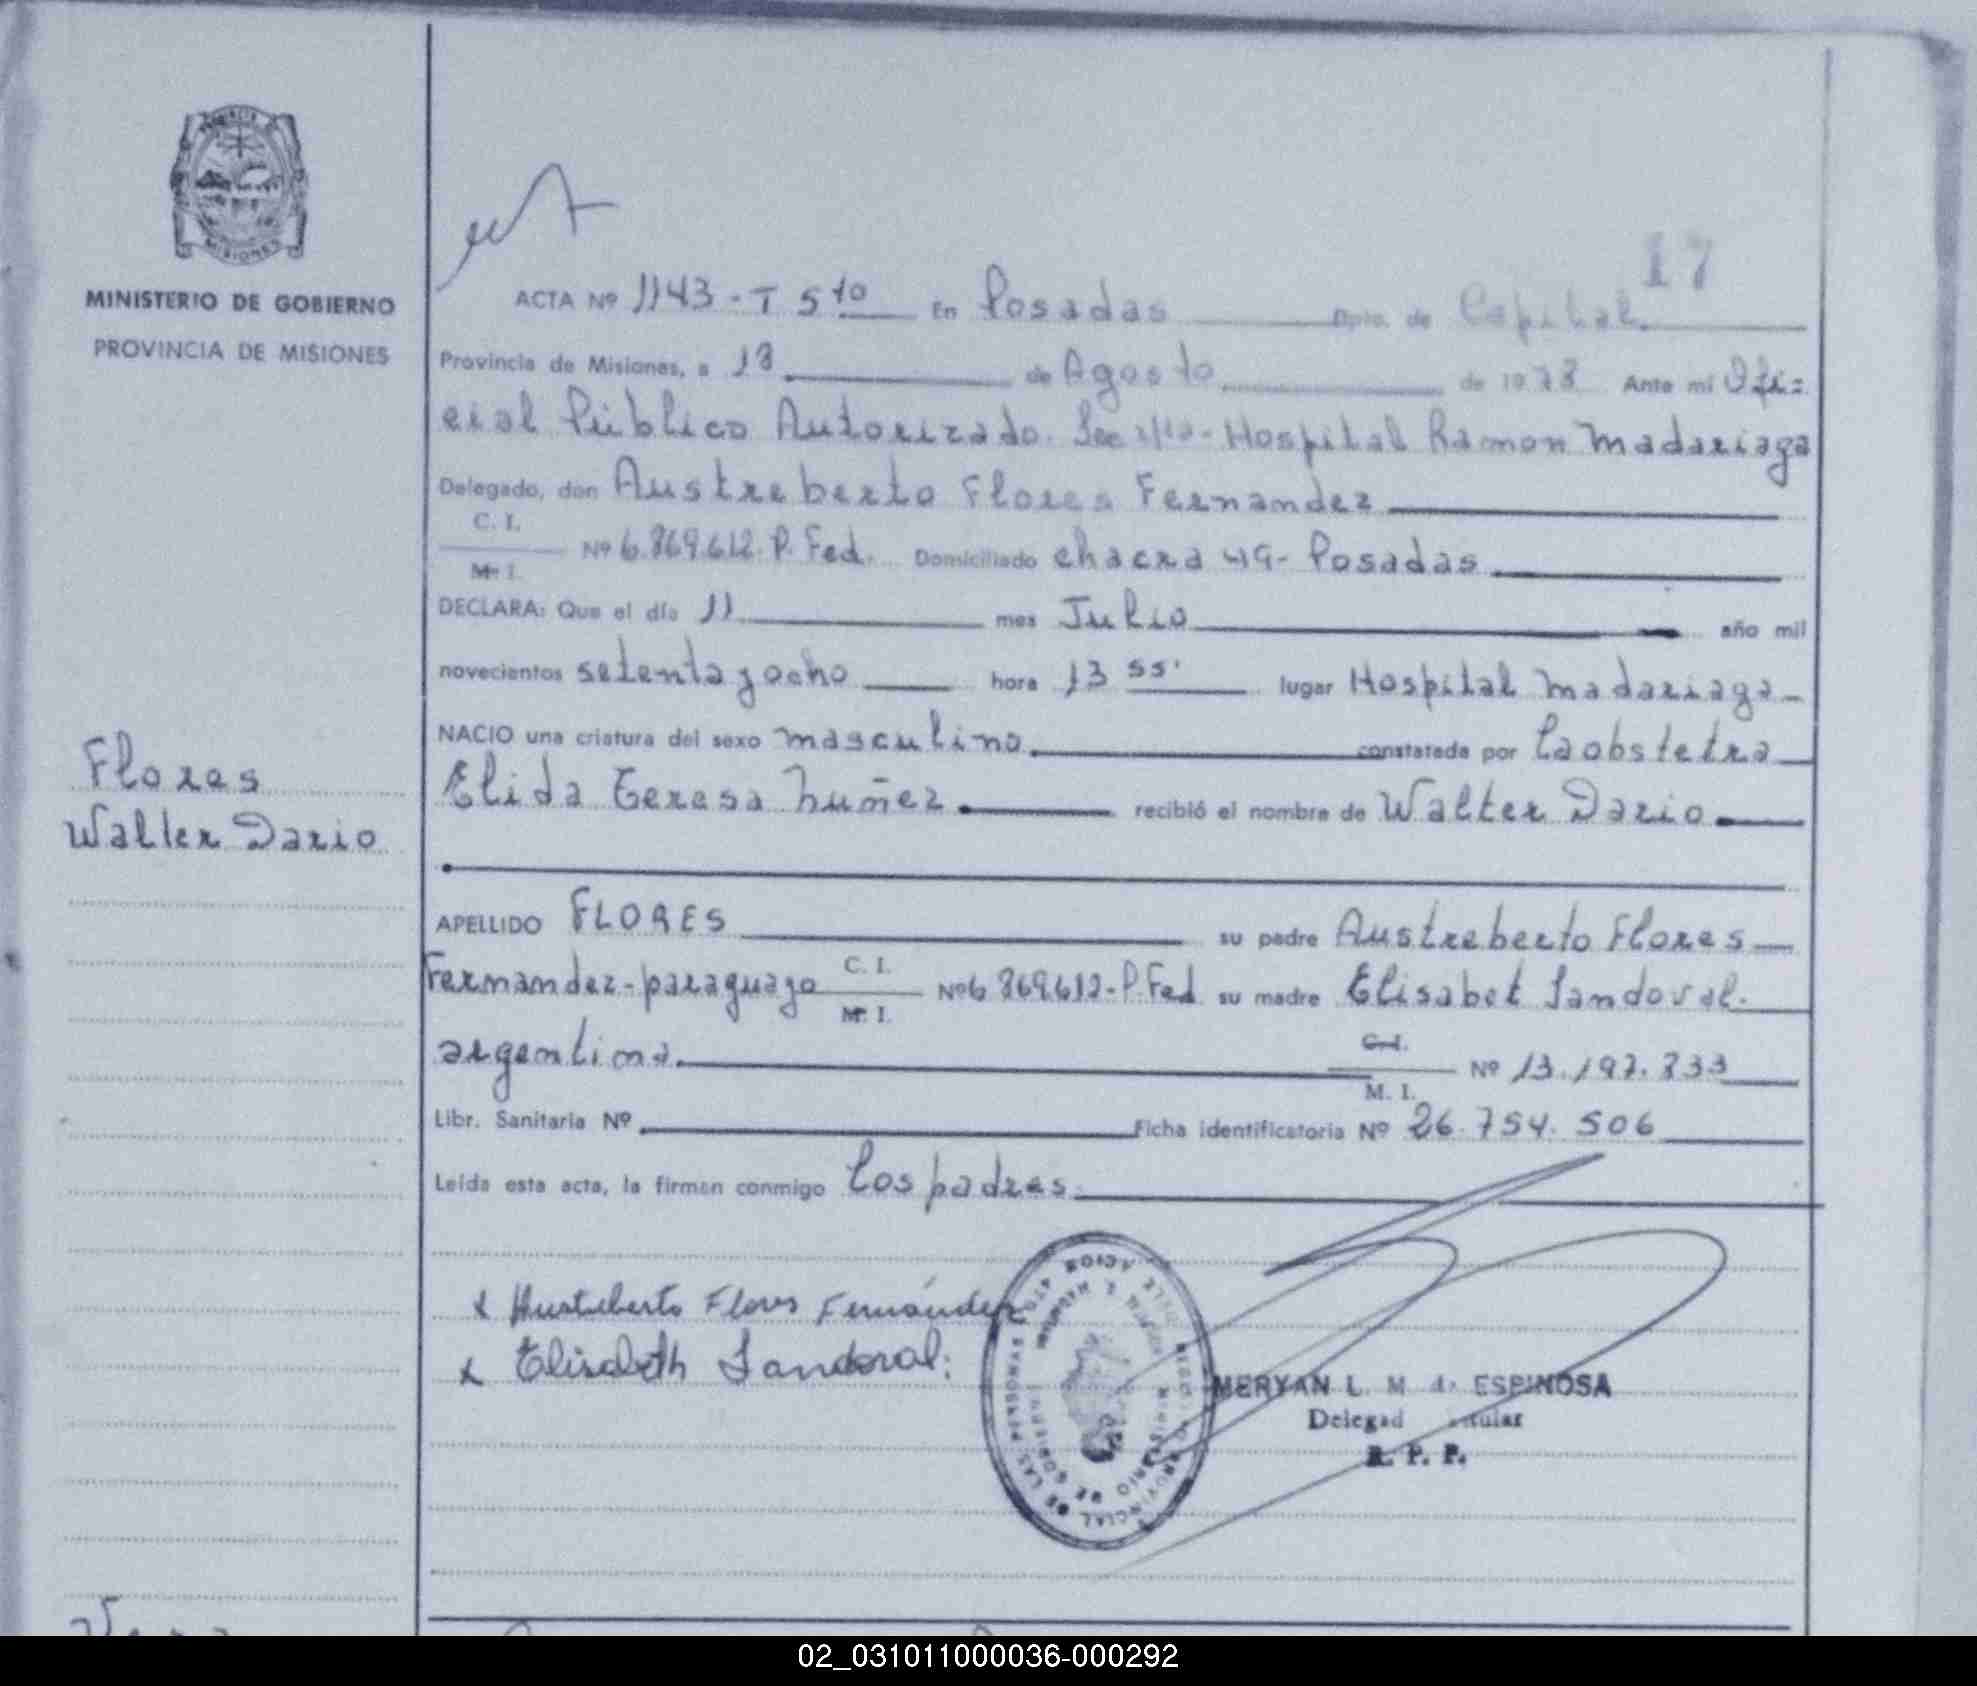 MINISTERIO DE GOBIERNO
PROVINCIA DE MISIONES
17
ACTA Nº 1143 - T 5to En Posadas Dpto. de Capital.
Provincia de Misiones, a 18 de Agosto de 1978 Ante mí Ofi=
cial Público Autorizado. Sec Hospital Ramon Madariaga
Delegado, don Austreberto Flores Fernandez
C. I.
M. I.
Nº 6.869.612. P. Fed. Domiciliado chacra 49- Posadas
DECLARA: Que el día 11 mes Julio año mil
novecientos setenta y ocho hora 13 55' lugar Hospital Madariaga-
NACIO una criatura del sexo masculino constatada por la obstetra
Elida Teresa Nuñez recibió el nombre de Walter Dario
Flores
Walter Dario
APELLIDO FLORES su padre Austreberto Flores
Fernandez-paraguayo C. I. M. I. Nº 6.869.612-P. Fed su madre Elisabet Sandoval.
argentina. C. I. M. I. Nº 13.197.733
Libr. Sanitaria Nº Ficha identificatoria Nº 26.754.506
Leída esta acta, la firman conmigo Los padres.
x Austreberto Flores Fernández
x Elisabeth Sandoval.
MERYAN L. M. de ESPINOSA
Delegad
R. P. P.
02_031011000036-000292